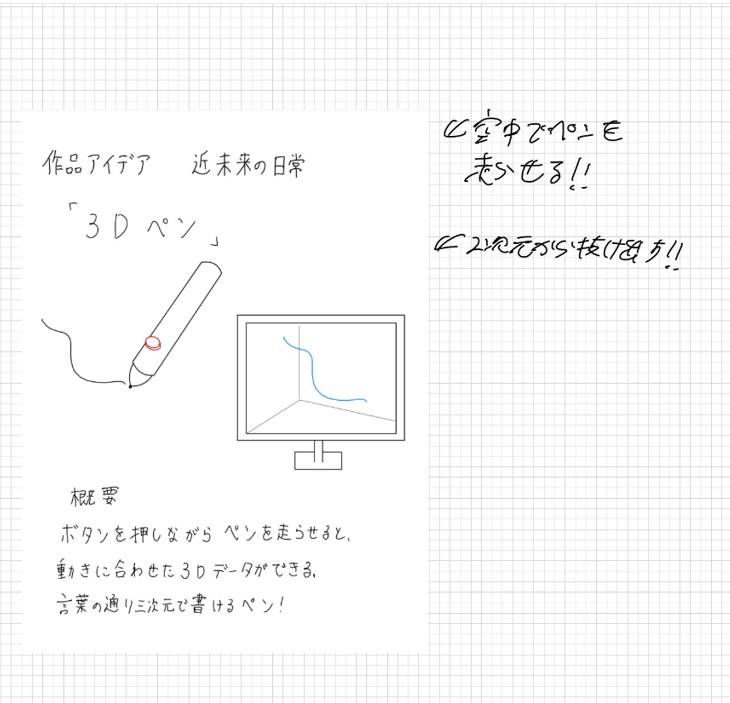 作品アイデア　近未来の日常
「3D ペン」
概要
ボタンを押しながら ペンを走らせると、
動きに合わせた3Dデータができる。
言葉の通り三次元で書けるペン!
空中でペンを
走らせる!!
2次元から抜け出す!!